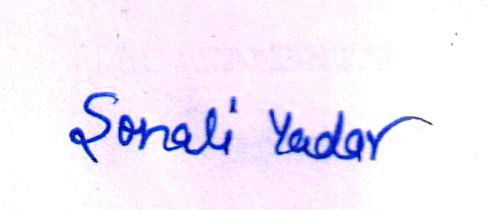 Sonali Yadav